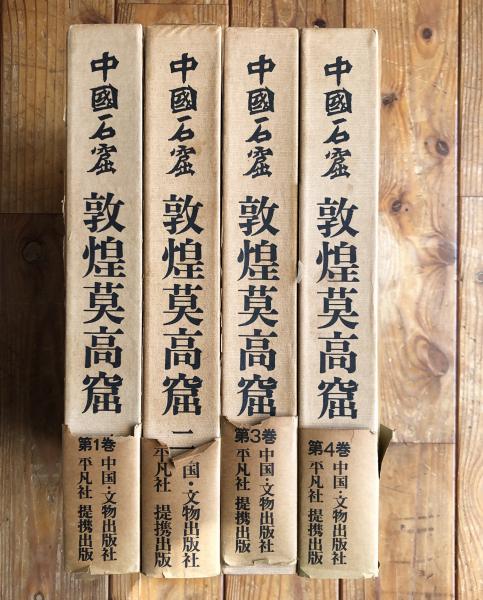 中國石窟
敦煌莫高窟
第1巻
中国・文物出版社
平凡社 提携出版
中國石窟
敦煌莫高窟
二
国・文物出版社
平凡社 提携出版
中國石窟
敦煌莫高窟
第3巻
中国・文物出版社
平凡社 提携出版
中國石窟
敦煌莫高窟
第4巻
中国・文物出版社
平凡社 提携出版